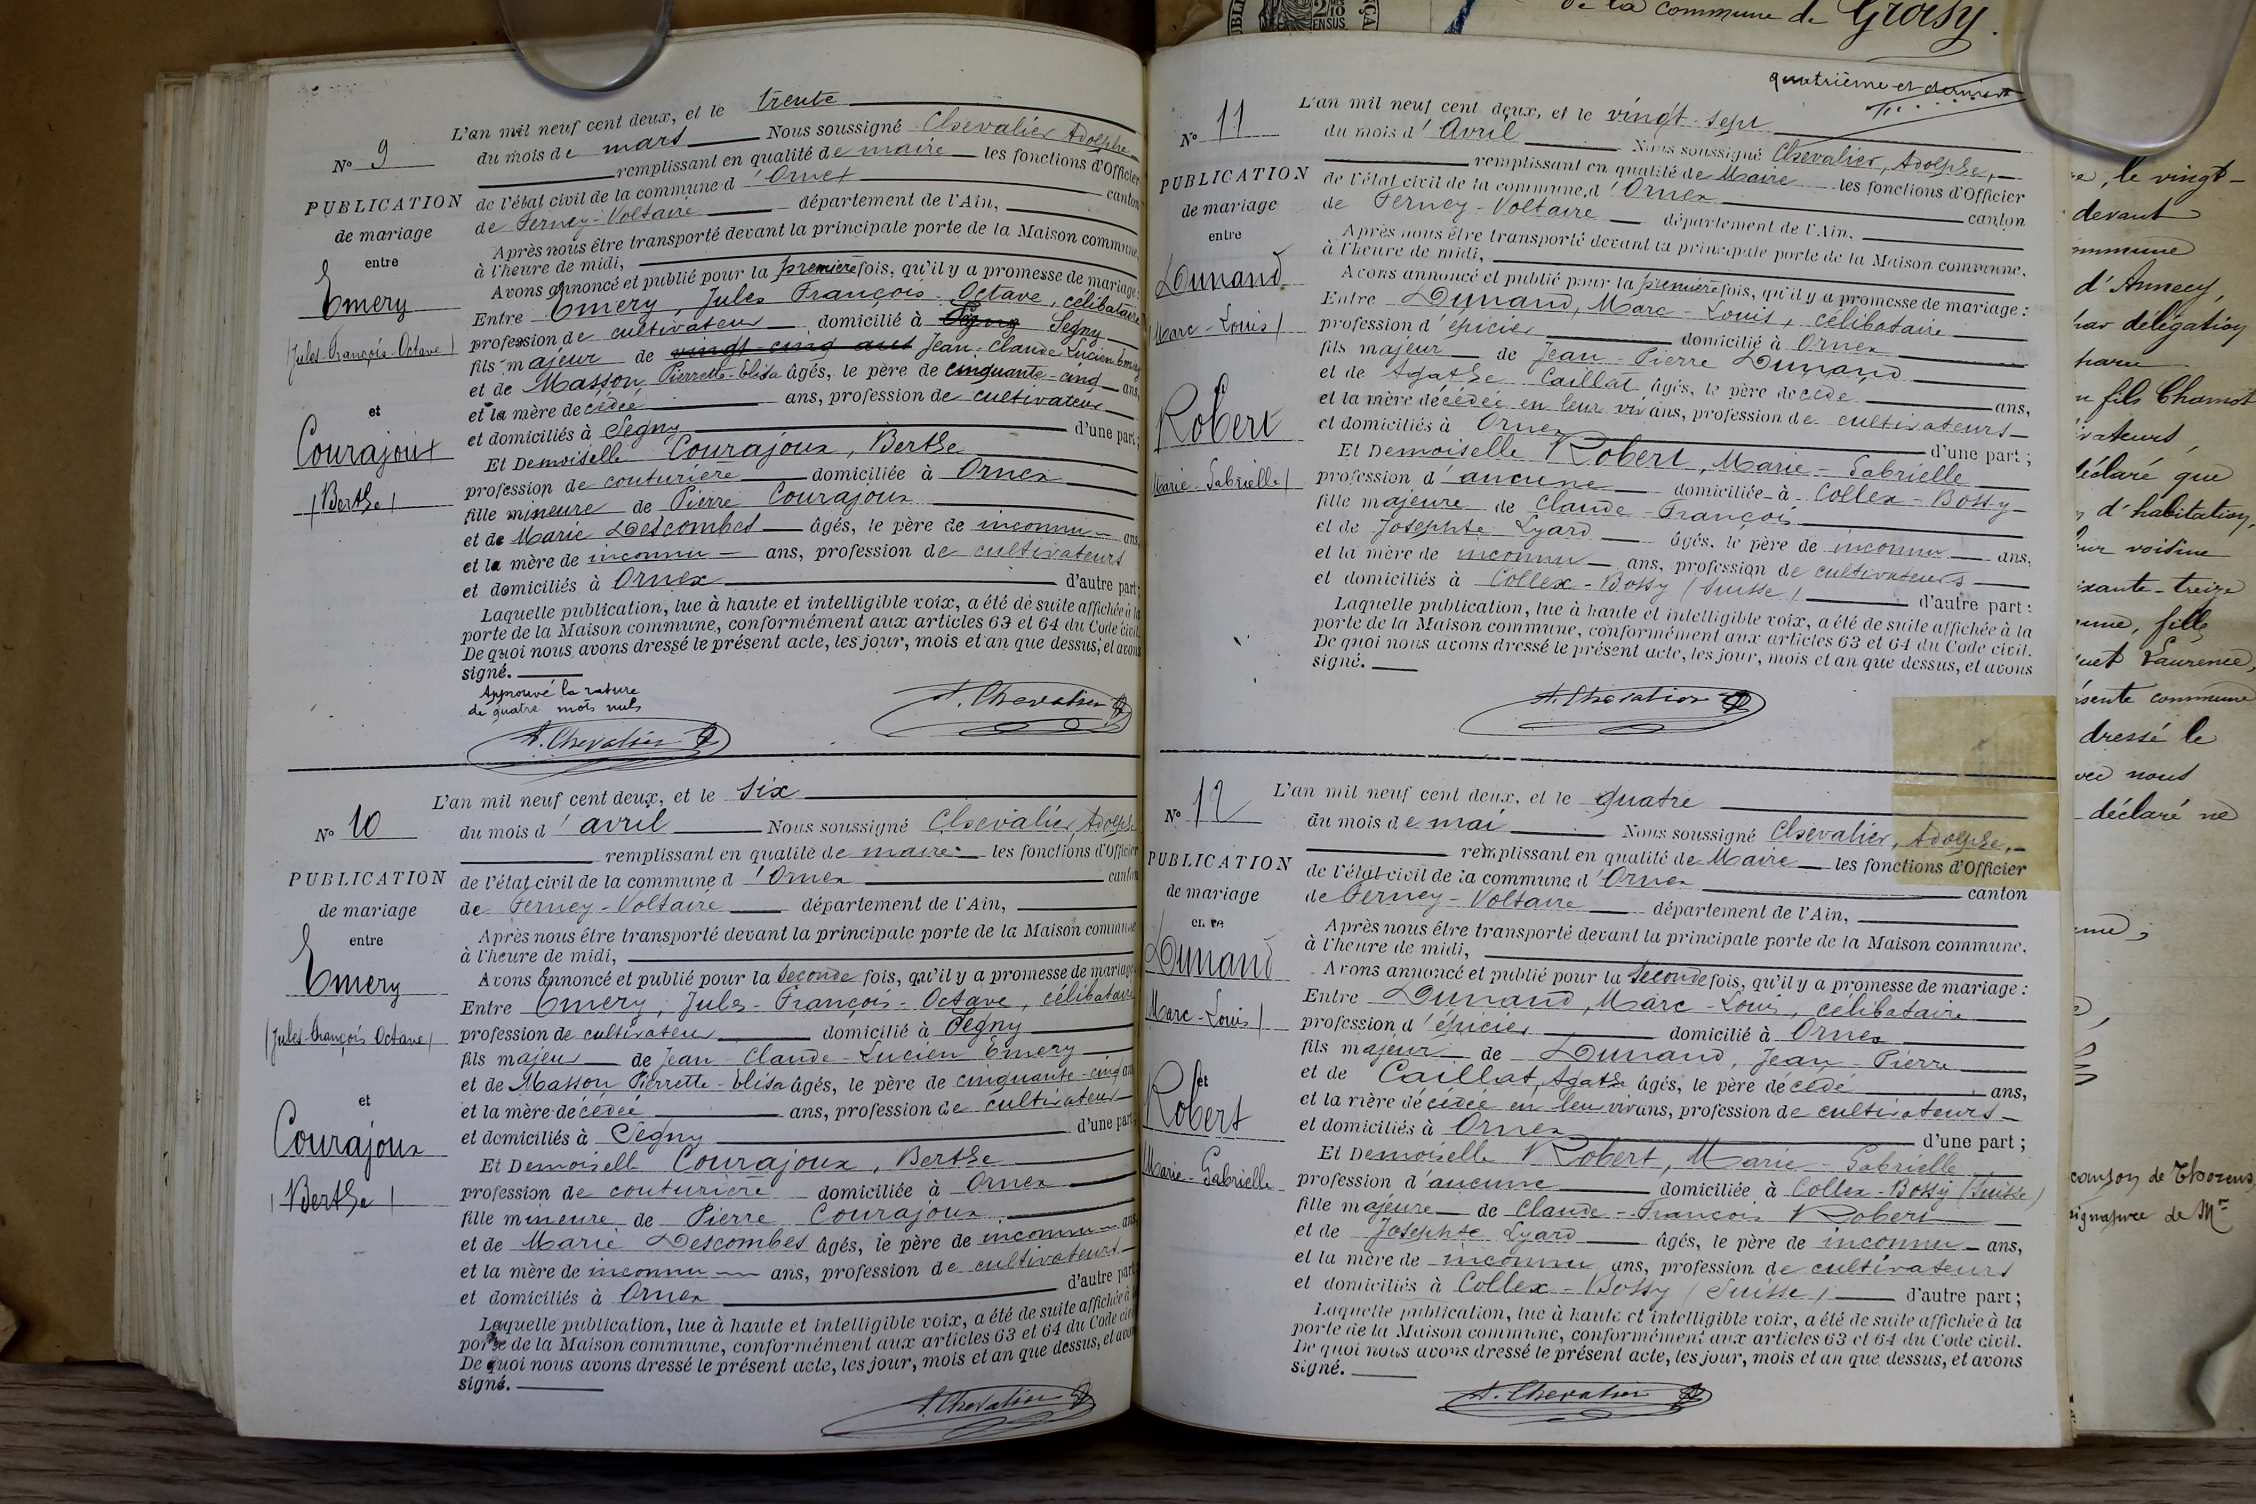 N° 9
PUBLICATION
de mariage
entre
Emery
(Jules-François-Octave)
et
Courajoux
(Berthe)
L'an mil neuf cent deux, et le trente
du mois de mars Nous soussigné Chevalier Adolphe
remplissant en qualité de maire les fonctions d'Officier
de l'état civil de la commune d'Ornex canton
de Ferney-Voltaire département de l'Ain,
Après nous être transporté devant la principale porte de la Maison commune,
à l'heure de midi,
Avons annoncé et publié pour la première fois, qu'il y a promesse de mariage:
Entre Emery Jules François Octave, célibataire
profession de cultivateur domicilié à Segny Segny
fils majeur de vingt-cinq ans Jean-Claude Lucien Emery
et de Masson Pierrette-Elisa âgés, le père de cinquante-cinq ans,
et la mère décédée ans, profession de cultivateur
et domiciliés à Segny d'une part;
Et Demoiselle Courajoux, Berthe
profession de couturière domiciliée à Ornex
fille mineure de Pierre Courajoux
et de Marie Descombes âgés, le père de inconnu ans,
et la mère de inconnu ans, profession de cultivateurs
et domiciliés à Ornex d'autre part;
Laquelle publication, lue à haute et intelligible voix, a été de suite affichée à la
porte de la Maison commune, conformément aux articles 63 et 64 du Code civil.
De quoi nous avons dressé le présent acte, les jour, mois et an que dessus, et avons
signé.
Approuvé la rature
de quatre mots nuls
A. Chevalier
A. Chevalier
N° 10
PUBLICATION
de mariage
entre
Emery
(Jules-François Octave)
et
Courajoux
(Berthe)
L'an mil neuf cent deux, et le six
du mois d'avril Nous soussigné Chevalier, Adolphe
remplissant en qualité de maire les fonctions d'Officier
de l'état civil de la commune d'Ornex canton
de Ferney-Voltaire département de l'Ain,
Après nous être transporté devant la principale porte de la Maison commune
à l'heure de midi,
Avons annoncé et publié pour la seconde fois, qu'il y a promesse de mariage
Entre Emery, Jules-François-Octave, célibataire
profession de cultivateur domicilié à Segny
fils majeur de Jean-Claude-Lucien Emery
et de Masson Pierrette-Elisa âgés, le père de cinquante-cinq ans
et la mère décédée ans, profession de cultivateur
et domiciliés à Segny d'une part,
Et Demoiselle Courajoux, Berthe
profession de couturière domiciliée à Ornex
fille mineure de Pierre Courajoux
et de Marie Descombes âgés, le père de inconnu ans,
et la mère de inconnu ans, profession de cultivateurs
et domiciliés à Ornex d'autre part
Laquelle publication, lue à haute et intelligible voix, a été de suite affichée à
porte de la Maison commune, conformément aux articles 63 et 64 du Code civil
De quoi nous avons dressé le présent acte, les jour, mois et an que dessus, et avons
signé.
A. Chevalier
quatrième et dernier
N° 11
PUBLICATION
de mariage
entre
Dunand
(Marc-Louis)
Robert
(Marie-Gabrielle)
L'an mil neuf cent deux, et le vingt-sept
du mois d'Avril Nous soussigné Chevalier, Adolphe,
remplissant en qualité de Maire les fonctions d'Officier
de l'état civil de la commune d'Ornex canton
de Ferney-Voltaire département de l'Ain,
Après nous être transporté devant la principale porte de la Maison commune,
à l'heure de midi,
Avons annoncé et publié pour la première fois, qu'il y a promesse de mariage:
Entre Dunand, Marc-Louis, célibataire
profession d'épicier domicilié à Ornex
fils majeur de Jean-Pierre Dunand
et de Agathe Caillat âgés, le père décédé ans,
et la mère décédée en leur viv ans, profession de cultivateurs
et domiciliés à Ornex d'une part;
Et Demoiselle Robert, Marie-Gabrielle
profession d'aucune domiciliée à Collex-Bossy
fille majeure de Claude-François
et de Josephte Lyard âgés, le père de inconnu ans,
et la mère de inconnu ans, profession de cultivateurs
et domiciliés à Collex-Bossy (Suisse) d'autre part:
Laquelle publication, lue à haute et intelligible voix, a été de suite affichée à la
porte de la Maison commune, conformément aux articles 63 et 64 du Code civil.
De quoi nous avons dressé le présent acte, les jour, mois et an que dessus, et avons
signé.
A. Chevalier
N° 12
PUBLICATION
de mariage
entre
Dunand
Marc-Louis)
et
Robert
Marie-Gabrielle
L'an mil neuf cent deux, et le quatre
du mois de mai Nous soussigné Chevalier, Adolphe,
remplissant en qualité de Maire les fonctions d'Officier
de l'état civil de la commune d'Ornex canton
de Ferney-Voltaire département de l'Ain,
Après nous être transporté devant la principale porte de la Maison commune,
à l'heure de midi,
Avons annoncé et publié pour la seconde fois, qu'il y a promesse de mariage:
Entre Dunand, Marc-Louis, célibataire
profession d'épicier domicilié à Ornex
fils majeur de Dunand, Jean-Pierre
et de Caillat, Agathe âgés, le père décédé ans,
et la mère décédée en leur viv ans, profession de cultivateurs
et domiciliés à Ornex d'une part;
Et Demoiselle Robert, Marie-Gabrielle
profession d'aucune domiciliée à Collex-Bossy (Suisse)
fille majeure de Claude-François Robert
et de Josephte Lyard âgés, le père de inconnu ans,
et la mère de inconnu ans, profession de cultivateurs
et domiciliés à Collex-Bossy (Suisse) d'autre part;
Laquelle publication, lue à haute et intelligible voix, a été de suite affichée à la
porte de la Maison commune, conformément aux articles 63 et 64 du Code civil.
De quoi nous avons dressé le présent acte, les jour, mois et an que dessus, et avons
signé.
A. Chevalier
de la commune de Groisy.
le vingt-
devant
d'Annecy,
par délégation
fils Chamot
déclaré que
d'habitation,
voisine
treize
fille
Laurence,
commune
dressé le
nous
déclaré ne
canton de Thorens
signature de Mr